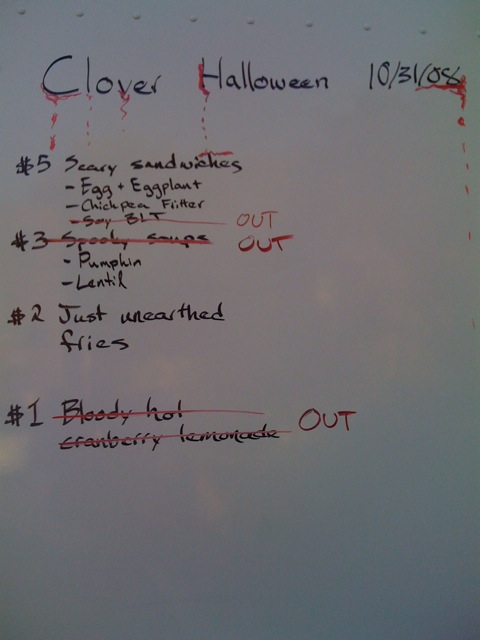 Clover Halloween 10/31/08
$5 Scary sandwiches
- Egg + Eggplant
- Chickpea Fritter
- Soy BLT OUT
$3 Spooky soups OUT
- Pumpkin
- Lentil
$2 Just unearthed
fries
$1 Bloody hot
cranberry lemonade OUT